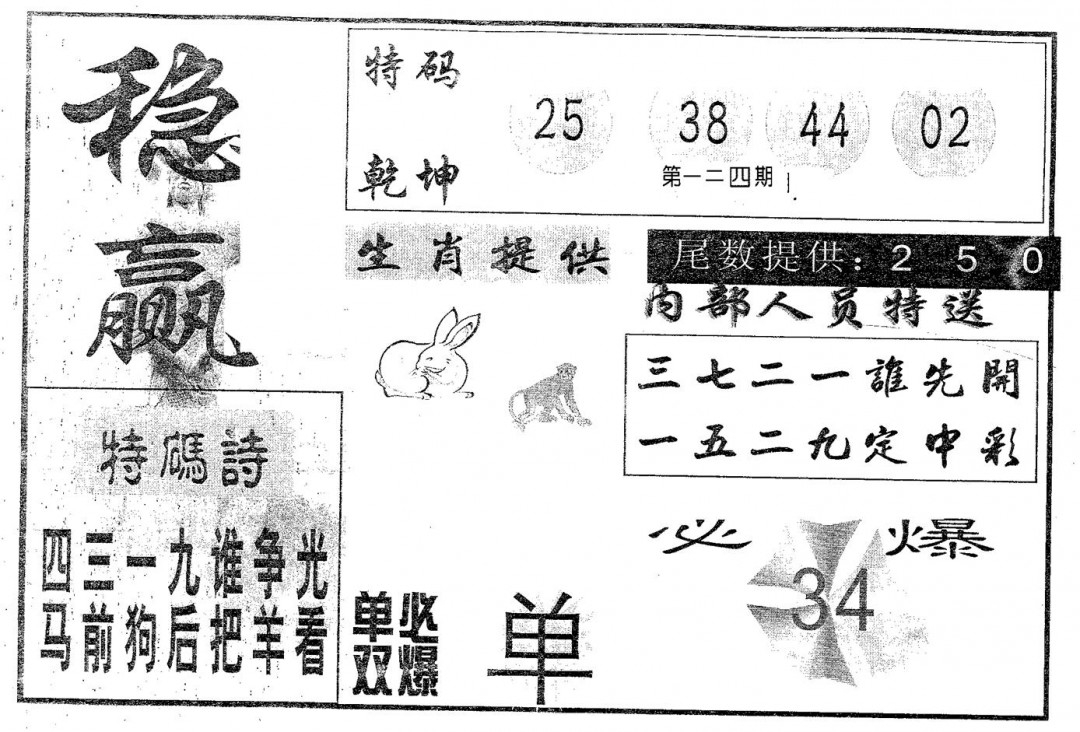 稳
赢
特码
乾坤
25 38 44 02
第一二四期
生肖提供
尾数提供：2 5 0
内部人员特送
三七二一誰先開
一五二九定中彩
特碼詩
四三一九谁争光
马前狗后把羊看
单双
必爆
单
必爆
34